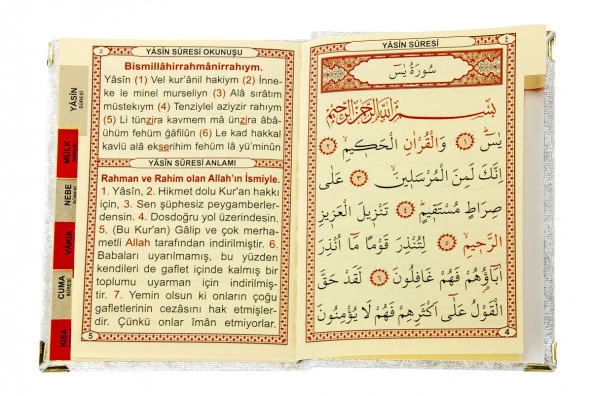 ٥
YÂSİN SÛRESİ OKUNUŞU
Bismillâhirrahmânirrahıym.
Yâsîn (1) Vel kur'ânil hakiym (2) İnne-
ke le minel murseliyn (3) Alâ sırâtım
müstekıym (4) Tenziylel aziyzir rahıym
(5) Li tünzira kavmem mâ ünzira âbâ-
ühüm fehüm ğâfilûn (6) Le kad hakkal
kavlü alâ ekserihim fehüm lâ yü'minûn
YÂSİN SÛRESİ ANLAMI
Rahman ve Rahim olan Allah'ın İsmiyle.
1. Yâsîn, 2. Hikmet dolu Kur'an hakkı
için, 3. Sen şüphesiz peygamberler-
densin. 4. Dosdoğru yol üzerindesin.
5. (Bu Kur'an) Gâlip ve çok merha-
metli Allah tarafından indirilmiştir. 6.
Babaları uyarılmamış, bu yüzden
kendileri de gaflet içinde kalmış bir
toplumu uyarman için indirilmiş-
tir. 7. Yemin olsun ki onların çoğu
gafletlerinin cezasını hak etmişler-
dir. Çünkü onlar îmân etmiyorlar.
5
YÂSİN
SÛRESİ
MÜLK
SÛRESİ
NEBE
SÛRESİ
VÂKIA
CUMA
SÛRESİ
KISA
٤
YÂSİN SÛRESİ
سُورَةُ يٰسٓ
بِسْمِ اللّٰهِ الرَّحْمٰنِ الرَّحِيمِ
يٰسٓ ﴿١﴾ وَالْقُرْاٰنِ الْحَكِيمِ ﴿٢﴾
اِنَّكَ لَمِنَ الْمُرْسَلِينَ ﴿٣﴾ عَلٰى
صِرَاطٍ مُسْتَقِيمٍ ﴿٤﴾ تَنْزِيلَ الْعَزِيزِ
الرَّحِيمِ ﴿٥﴾ لِتُنْذِرَ قَوْمًا مَٓا اُنْذِرَ
اٰبَٓاؤُهُمْ فَهُمْ غَافِلُونَ ﴿٦﴾ لَقَدْ حَقَّ
الْقَوْلُ عَلٰٓى اَكْثَرِهِمْ فَهُمْ لَا يُؤْمِنُونَ
4